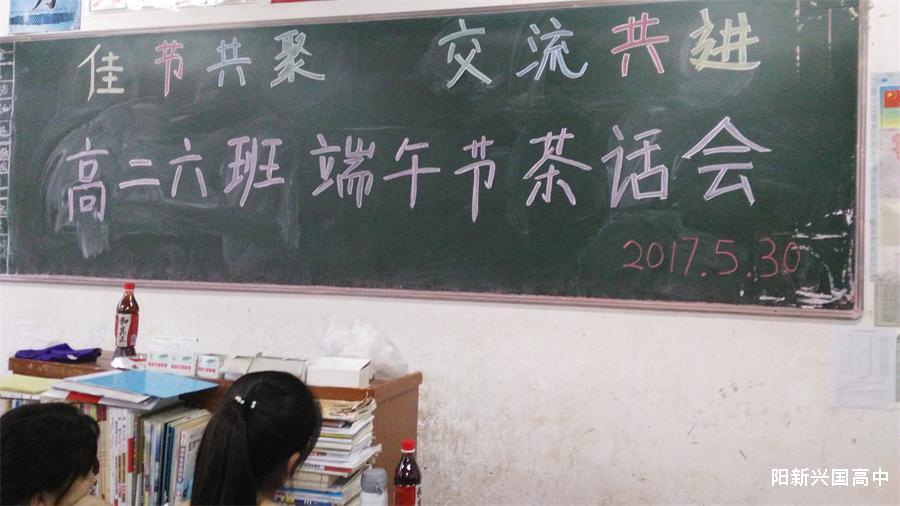 佳节共聚 交流共进
高二六班 端午节茶话会
2017.5.30
和其正
阳新兴国高中